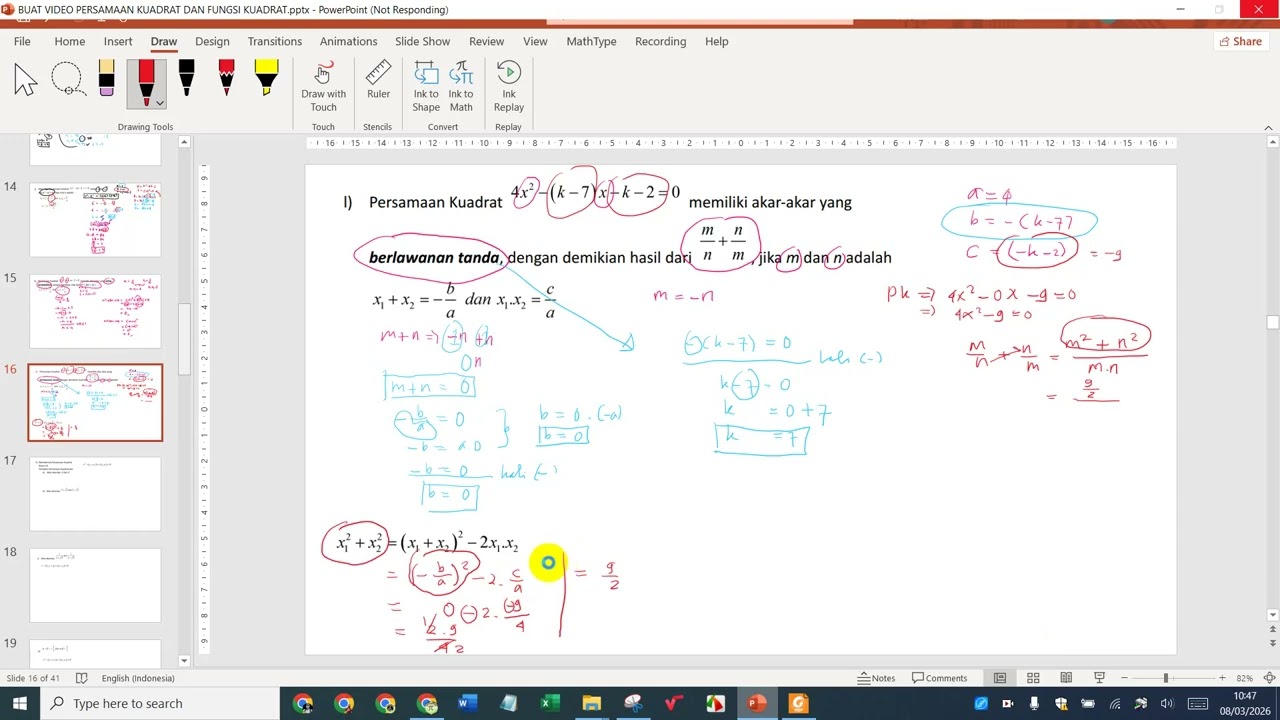 BUAT VIDEO PERSAMAAN KUADRAT DAN FUNGSI KUADRAT.pptx - PowerPoint (Not Responding)
File Home Insert Draw Design Transitions Animations Slide Show Review View MathType Recording Help Share
Draw with Touch
Ruler
Ink to Shape
Ink to Math
Ink Replay
Drawing Tools Touch Stencils Convert Replay
16 15 14 13 12 11 10 9 8 7 6 5 4 3 2 1 0 1 2 3 4 5 6 7 8 9 10 11 12 13 14 15 16
14
15
16
17
18
19
l) Persamaan Kuadrat 4x² − (k − 7) x − k − 2 = 0 memiliki akar-akar yang
berlawanan tanda, dengan demikian hasil dari m/n + n/m , jika m dan n adalah
x₁ + x₂ = − b/a dan x₁.x₂ = c/a
m = -n
m + n ⇒ -n + n
0n
m + n = 0
- b/a = 0
-b = a 0
-b = 0 kali (-)
b = 0
b = 0 . (-a)
b = 0
-(k-7) = 0
kali (-)
k - 7 = 0
k = 0 + 7
k = 7
a = 4
b = -(k-7)
c = (-k-2) = -9
PK ⇒ 4x² - 0x - 9 = 0
⇒ 4x² - 9 = 0
m/n + n/m = m² + n² / m.n
= 9/2
x₁² + x₂² = (x₁ + x₂)² − 2x₁.x₂
= (- b/a)² - 2. c/a
= 0 - 2. (-9)/4
= 2.9 / 4 2
= 9/2
Slide 16 of 41 English (Indonesia) Notes Comments 82%
Type here to search
10:47
08/03/2026